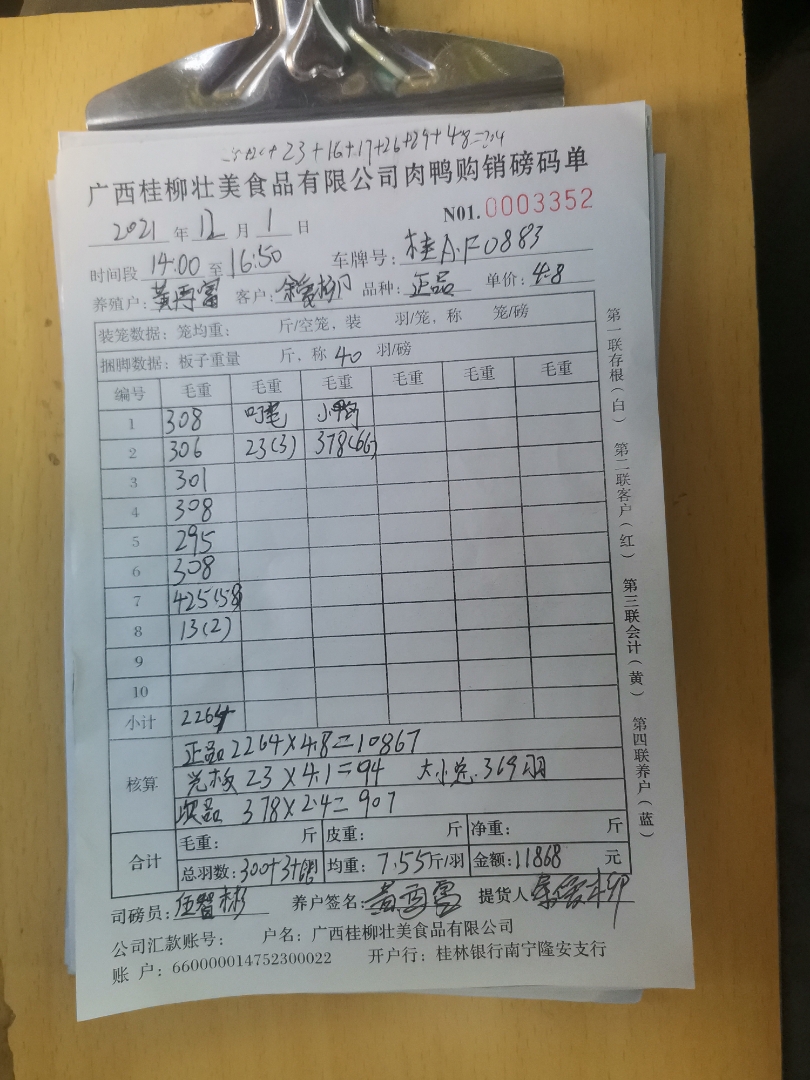 23+16+17+26+29+48=204
广西桂柳壮美食品有限公司肉鸭购销磅码单
2021 年 12 月 1 日 N01.0003352
时间段 14:00 至 16:50 车牌号: 桂A·F0883
养殖户: 黄再富 客户: 品种: 正品 单价: 4.8
装笼数据: 笼均重: 斤/空笼, 装 羽/笼, 称 笼/磅
捆脚数据: 板子重量 斤, 称 40 羽/磅
编号 毛重 毛重 毛重 毛重 毛重 毛重
1 308 小鸭
2 306 23(3) 378(66)
3 301
4 308
5 295
6 308
7 425(58)
8 13(2)
9
10
小计 2264
核算 正品 2264×4.8=10867
23×4.1=94 369羽
次品 378×2.4=907
合计 毛重: 斤 皮重: 斤 净重: 斤
总羽数: 300+3+ 均重: 7.55斤/羽 金额: 11868 元
司磅员: 伍智彬 养户签名: 黄再富 提货人
公司汇款账号: 户名: 广西桂柳壮美食品有限公司
账 户: 660000014752300022 开户行: 桂林银行南宁隆安支行
第一联存根(白) 第二联客户(红) 第三联会计(黄) 第四联养户(蓝)